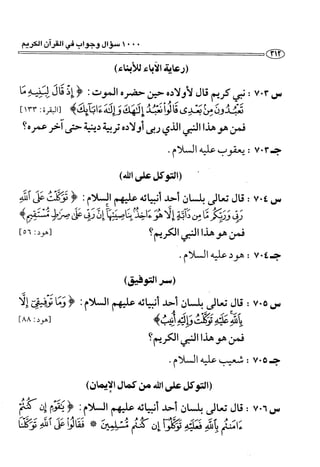 ١٠٠٠ سؤال وجواب في القرآن الكريم
٣١٢
(رعاية الآباء للأبناء)
س ٧٠٣ : نبي كريم قال لأولاده حين حضره الموت : ﴿ إِذْ قَالَ لِبَنِيهِ مَا
تَعْبُدُونَ مِنْ بَعْدِى قَالُوا نَعْبُدُ إِلَٰهَكَ وَإِلَٰهَ ءَابَآئِكَ ﴾ [البقرة: ١٣٣]
فمن هو هذا النبي الذي ربى أولاده تربية دينية حتى آخر عمره؟
جـ ٧٠٣ : يعقوب عليه السلام .
(التوكل على الله)
س ٧٠٤ : قال تعالى بلسان أحد أنبيائه عليهم السلام : ﴿ تَوَكَّلْتُ عَلَى ٱللَّهِ
رَبِّى وَرَبِّكُم مَّا مِن دَآبَّةٍ إِلَّا هُوَ ءَاخِذٌۢ بِنَاصِيَتِهَآ إِنَّ رَبِّى عَلَىٰ صِرَٰطٍ مُّسْتَقِيمٍ ﴾
[هود: ٥٦]
فمن هو هذا النبي الكريم؟
جـ ٧٠٤ : هود عليه السلام .
(سر التوفيق)
س ٧٠٥ : قال تعالى بلسان أحد أنبيائه عليهم السلام : ﴿ وَمَا تَوْفِيقِىٓ إِلَّا
بِٱللَّهِ عَلَيْهِ تَوَكَّلْتُ وَإِلَيْهِ أُنِيبُ ﴾ [هود: ٨٨]
فمن هو هذا النبي الكريم؟
جـ ٧٠٥ : شعيب عليه السلام .
(التوكل على الله من كمال الإيمان)
س ٧٠٦ : قال تعالى بلسان أحد أنبيائه عليهم السلام : ﴿ يَٰقَوْمِ إِن كُنتُمْ
ءَامَنتُم بِٱللَّهِ فَعَلَيْهِ تَوَكَّلُوٓا۟ إِن كُنتُم مُّسْلِمِينَ * فَقَالُوا۟ عَلَى ٱللَّهِ تَوَكَّلْنَا